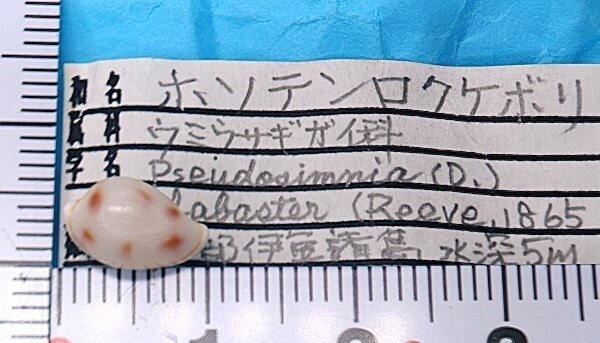 和名 ホソテンロクケボリ
属科 ウミウサギガイ科
学名 Pseudosimnia (D.)
alabaster (Reeve, 1865
部伊豆諸島 水深5m
1 2